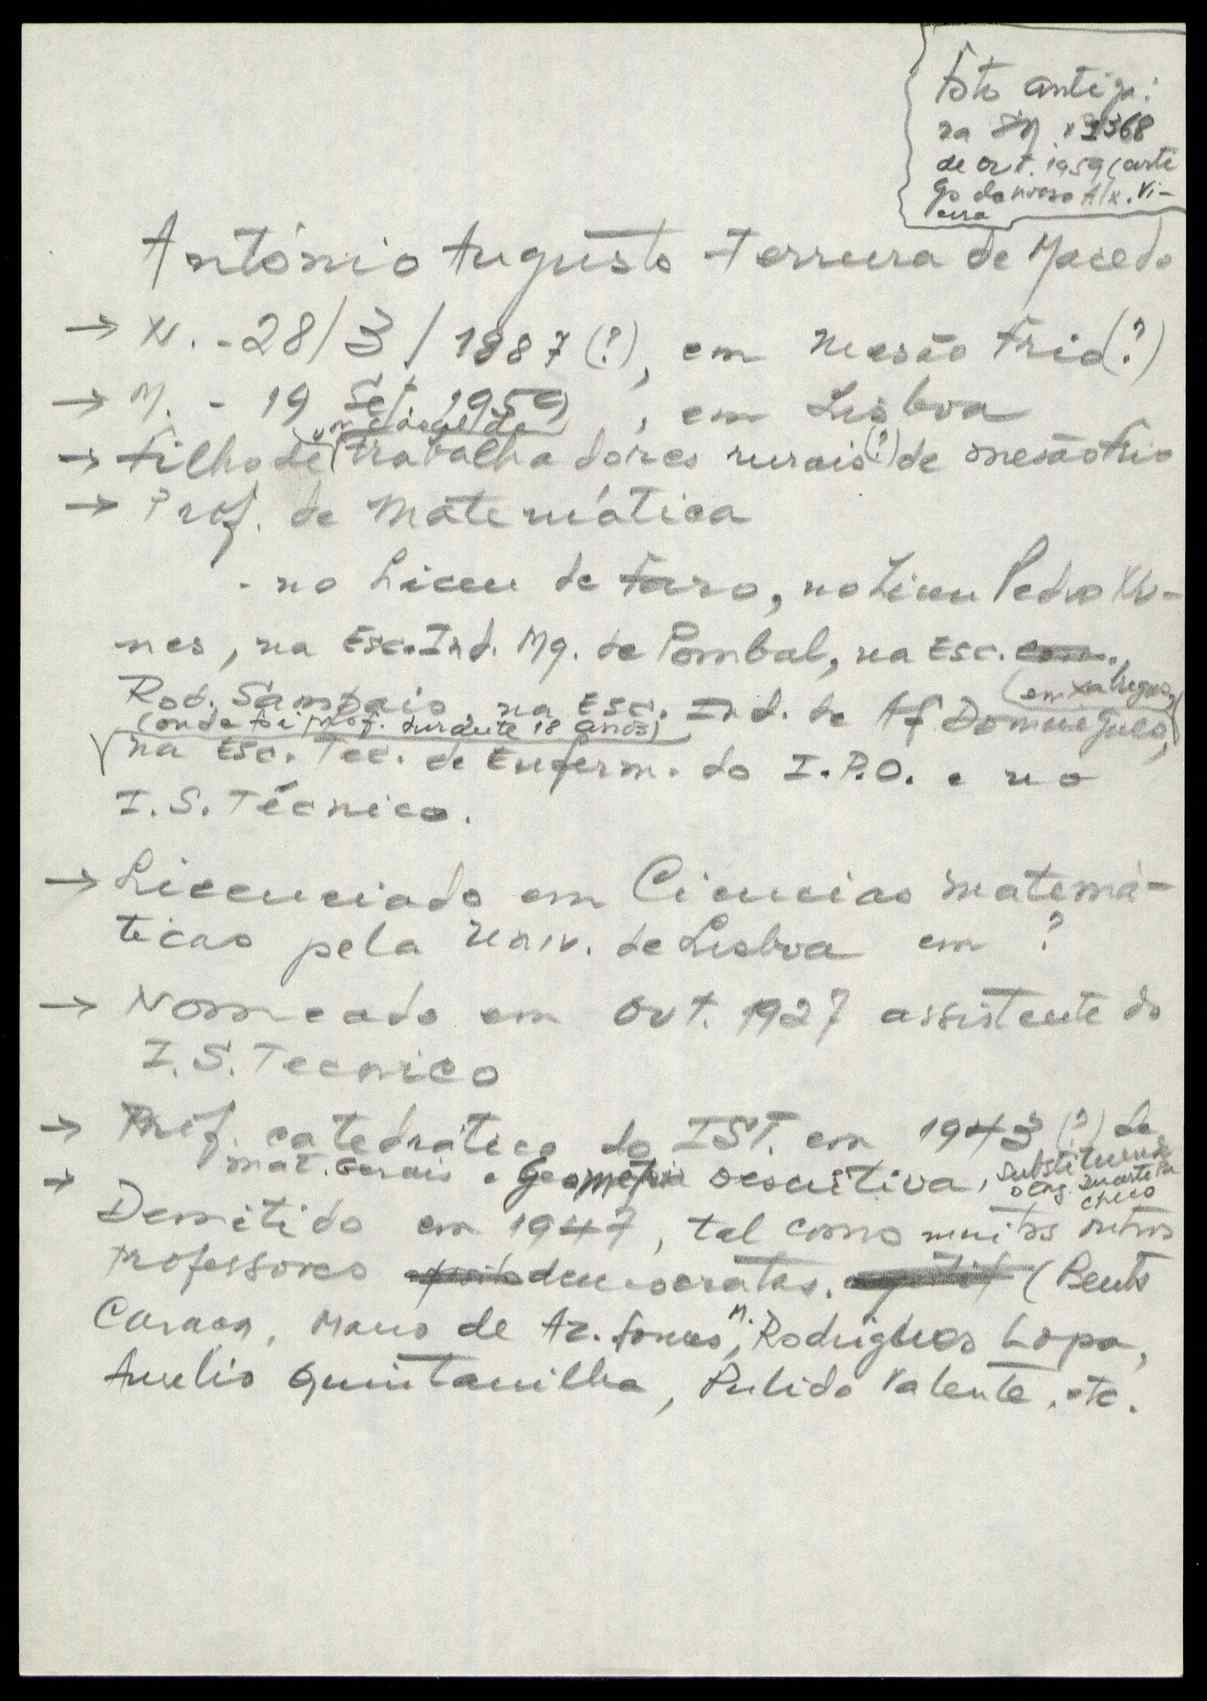 Foto antiga:
na SN. nº 1368
de Out. 1959 (arti
go do nosso Alx. Vi-
eira
António Augusto Ferreira de Macedo
→ N. - 28/3/1887 (?), em Mesão Frio (?)
→ M. - 19 Set. 1959, em Lisboa
um casal de
→ Filho de trabalhadores rurais (?) de Mesão Frio
→ Prof. de Matemática
- no Liceu de Faro, no Liceu Pedro Nu-
nes, na Esc. Ind. Mq. de Pombal, na Esc. com.,
Rod. Sampaio, na Esc. Ind. de Af Domingues,
(em Xabregas,
(onde foi prof. durante 18 anos)
na Esc. Tec. de Enferm. do I.P.O. e no
I.S. Técnico.
→ Licenciado em Ciencias Matemá-
ticas pela Univ. de Lisboa em ?
→ Nomeado em Out. 1927 assistente do
I.S. Tecnico
→ Prof. catedrático do IST. em 1943 (?) de
Mat. Gerais e Geometria Descritiva, substituindo
o eng. Duarte Pa
checo
→ Demitido em 1947, tal como muitos outros
professores democratas. (Bento
Caraça, Mario de Az. Gomes, M. Rodrigues Lapa,
Aurelio Quintanilha, Pulido Valente, etc.